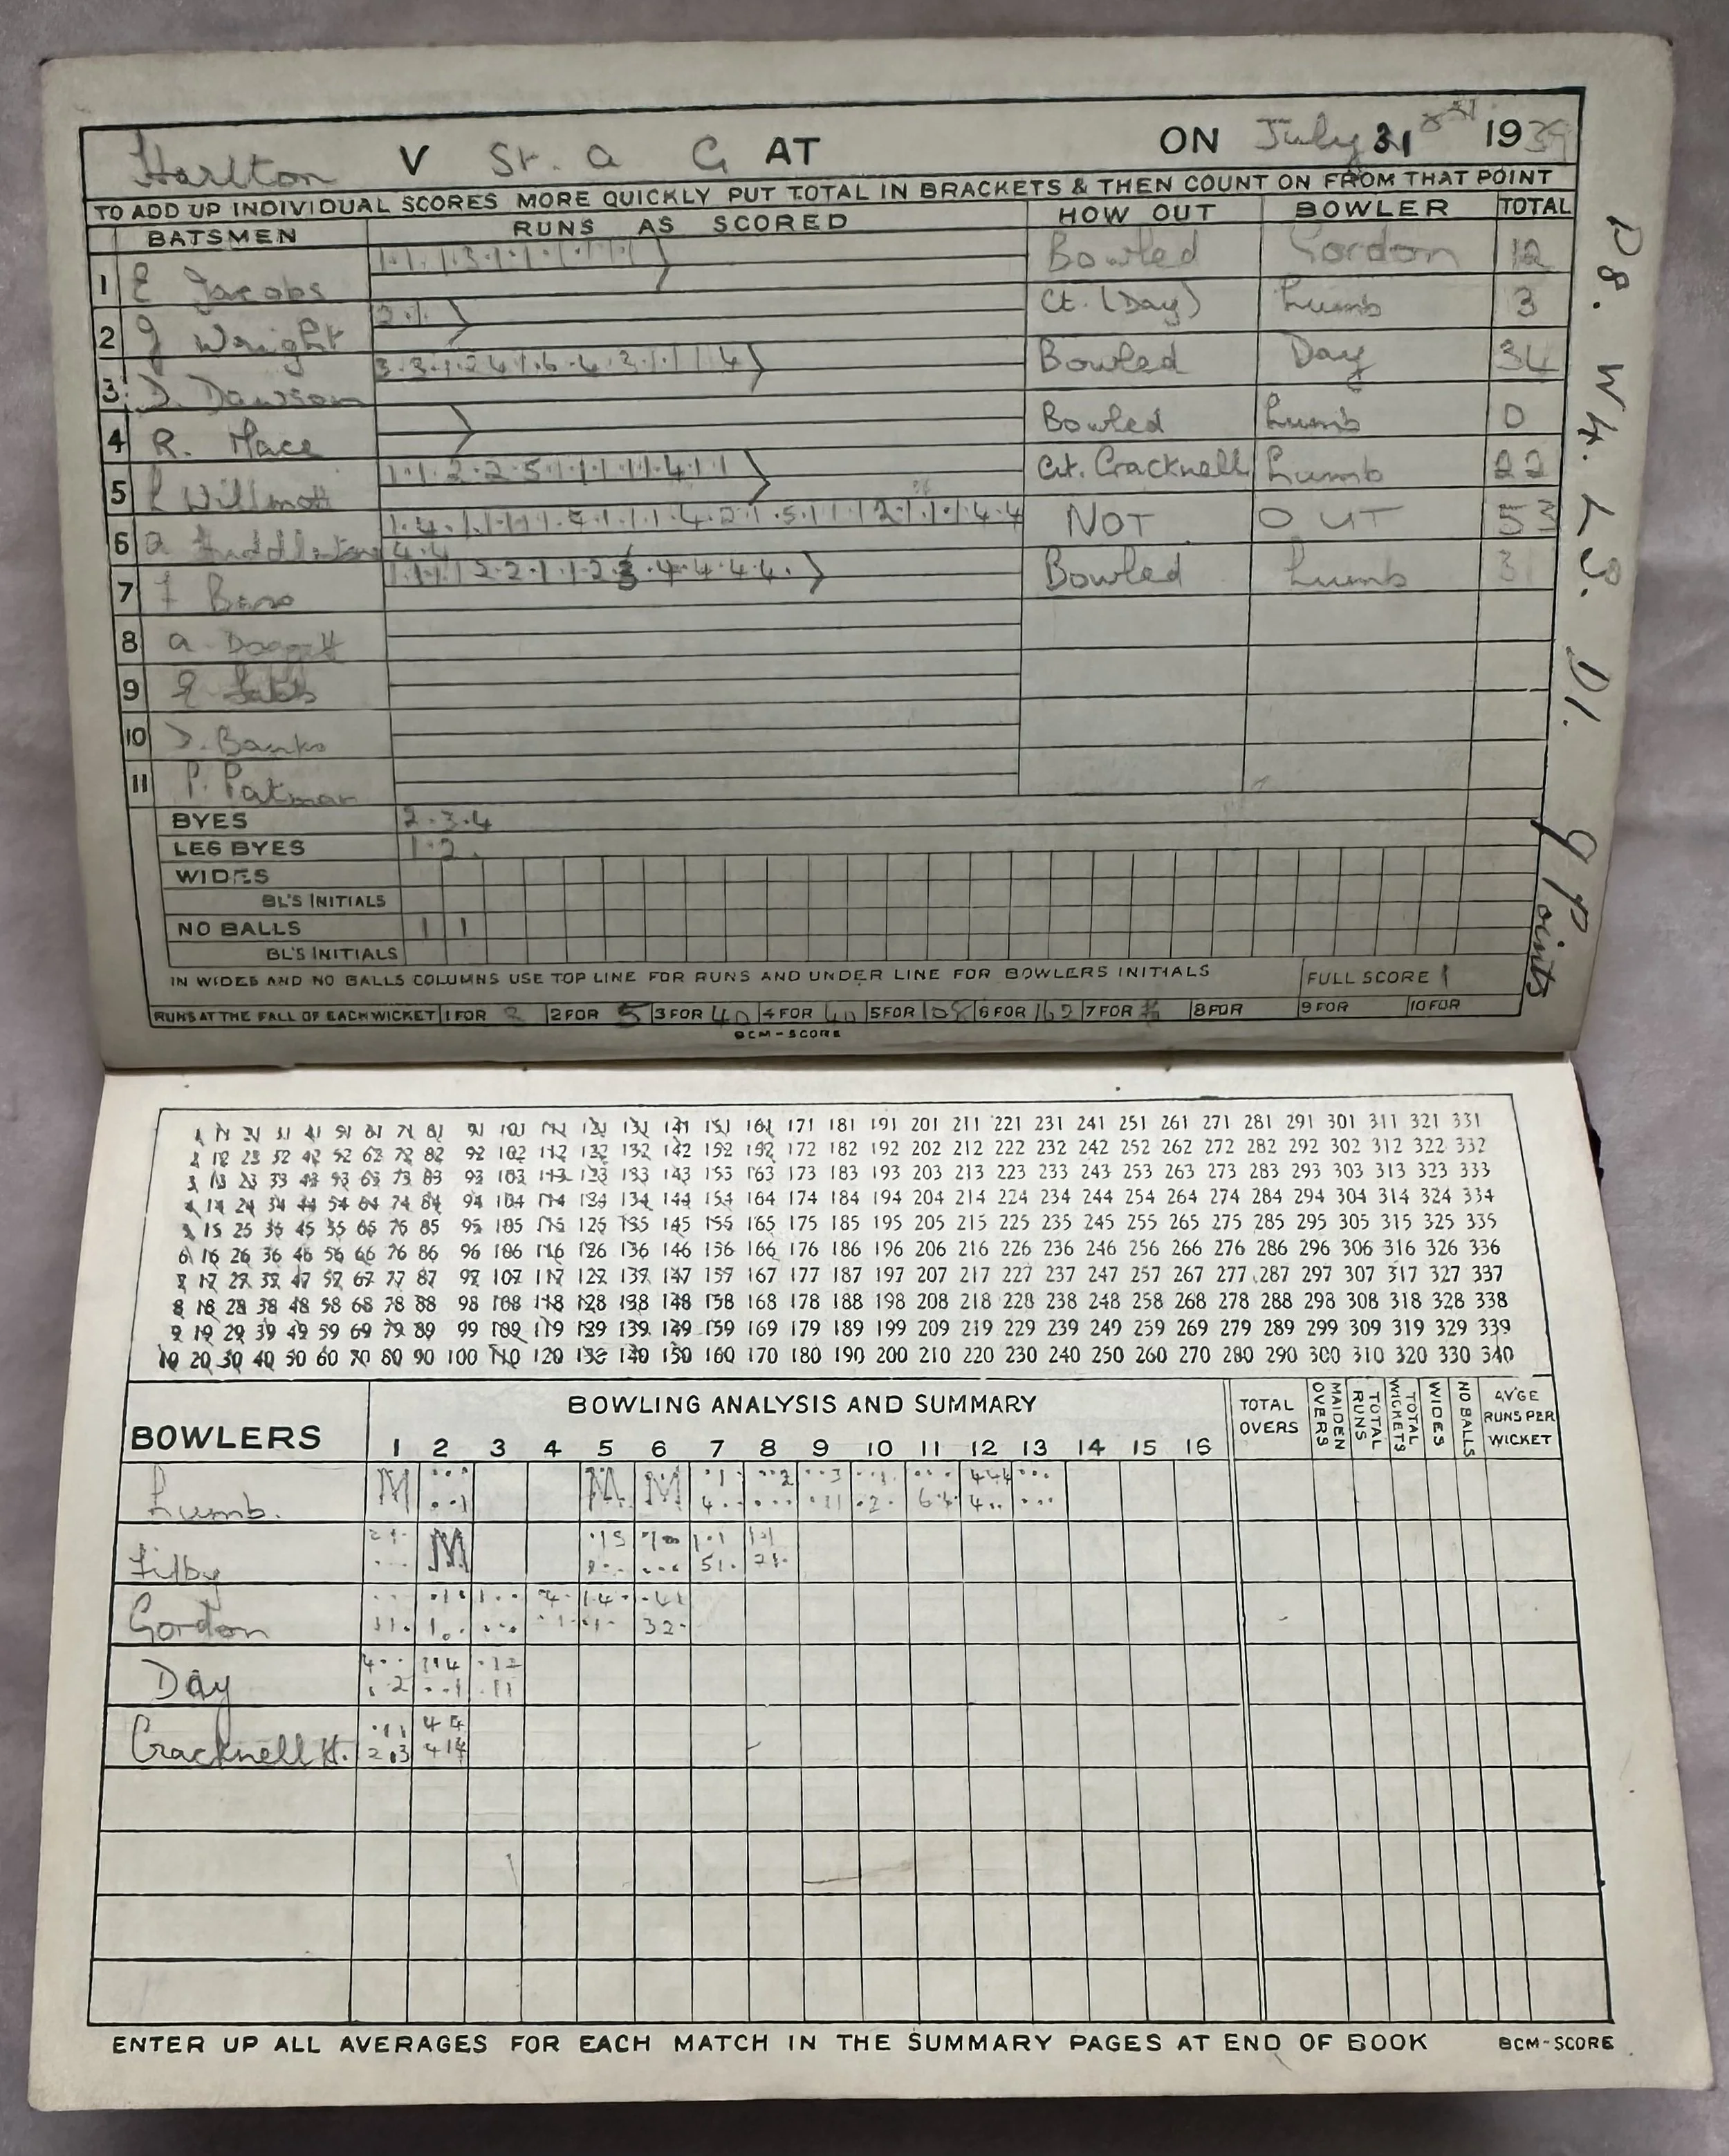 Harlton V St. a G AT ON July 31 st 1939
TO ADD UP INDIVIDUAL SCORES MORE QUICKLY PUT TOTAL IN BRACKETS & THEN COUNT ON FROM THAT POINT
BATSMEN RUNS AS SCORED HOW OUT BOWLER TOTAL
1 E Jacobs Bowled Gordon 12
2 J Wright 2.1. Ct. (Day) Lumb 3
3 D. Dawson Bowled Day 34
4 R. Mace Bowled Lumb 0
5 L Willmott 1.1.2.2.5.1.1.1.1.1.4.1.1 Ct. Cracknell Lumb 22
6 a NOT OUT 53
4.4
7 F Bowled Lumb 31
8 a Doggett
9 E
10 D. Banks
11 P. Patman
BYES 2.3.4
LEG BYES 1.2.
WIDES
BL'S INITIALS
NO BALLS 1 1
BL'S INITIALS
IN WIDES AND NO BALLS COLUMNS USE TOP LINE FOR RUNS AND UNDER LINE FOR BOWLERS INITIALS FULL SCORE
RUNS AT THE FALL OF EACH WICKET 1 FOR 2 FOR 5 3 FOR 40 4 FOR 40 5 FOR 108 6 FOR 162 7 FOR 8 FOR 9 FOR 10 FOR
BCM-SCORE
P8. W4. L3. D1. 9 Points
1 11 21 31 41 51 61 71 81 91 101 111 121 131 141 151 161 171 181 191 201 211 221 231 241 251 261 271 281 291 301 311 321 331
2 12 22 32 42 52 62 72 82 92 102 112 122 132 142 152 162 172 182 192 202 212 222 232 242 252 262 272 282 292 302 312 322 332
3 13 23 33 43 53 63 73 83 93 103 113 123 133 143 153 163 173 183 193 203 213 223 233 243 253 263 273 283 293 303 313 323 333
4 14 24 34 44 54 64 74 84 94 104 114 124 134 144 154 164 174 184 194 204 214 224 234 244 254 264 274 284 294 304 314 324 334
5 15 25 35 45 55 65 75 85 95 105 115 125 135 145 155 165 175 185 195 205 215 225 235 245 255 265 275 285 295 305 315 325 335
6 16 26 36 46 56 66 76 86 96 106 116 126 136 146 156 166 176 186 196 206 216 226 236 246 256 266 276 286 296 306 316 326 336
7 17 27 37 47 57 67 77 87 97 107 117 127 137 147 157 167 177 187 197 207 217 227 237 247 257 267 277 287 297 307 317 327 337
8 18 28 38 48 58 68 78 88 98 108 118 128 138 148 158 168 178 188 198 208 218 228 238 248 258 268 278 288 298 308 318 328 338
9 19 29 39 49 59 69 79 89 99 109 119 129 139 149 159 169 179 189 199 209 219 229 239 249 259 269 279 289 299 309 319 329 339
10 20 30 40 50 60 70 80 90 100 110 120 130 140 150 160 170 180 190 200 210 220 230 240 250 260 270 280 290 300 310 320 330 340
BOWLERS BOWLING ANALYSIS AND SUMMARY TOTAL OVERS MAIDEN OVERS TOTAL RUNS TOTAL WICKETS WIDES NO BALLS AV'GE RUNS PER WICKET
1 2 3 4 5 6 7 8 9 10 11 12 13 14 15 16
Lumb. M M M
Filby M
Gordon
Day
Cracknell H.
ENTER UP ALL AVERAGES FOR EACH MATCH IN THE SUMMARY PAGES AT END OF BOOK BCM-SCORE